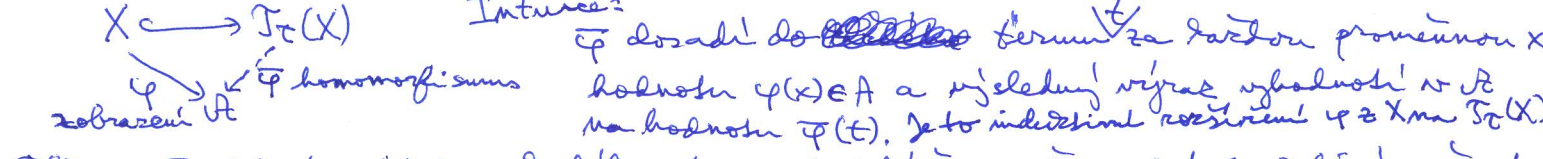 X ↪ T_τ(X)
φ
φ̄ homomorfismus
zobrazení 𝒜
Intuice:
φ̄ dosadí do termu t za každou proměnnou x
hodnotu φ(x)∈A a výsledný výraz vyhodnotí v 𝒜
na hodnotu φ̄(t). Je to induktivní rozšíření φ z X na T_τ(X).